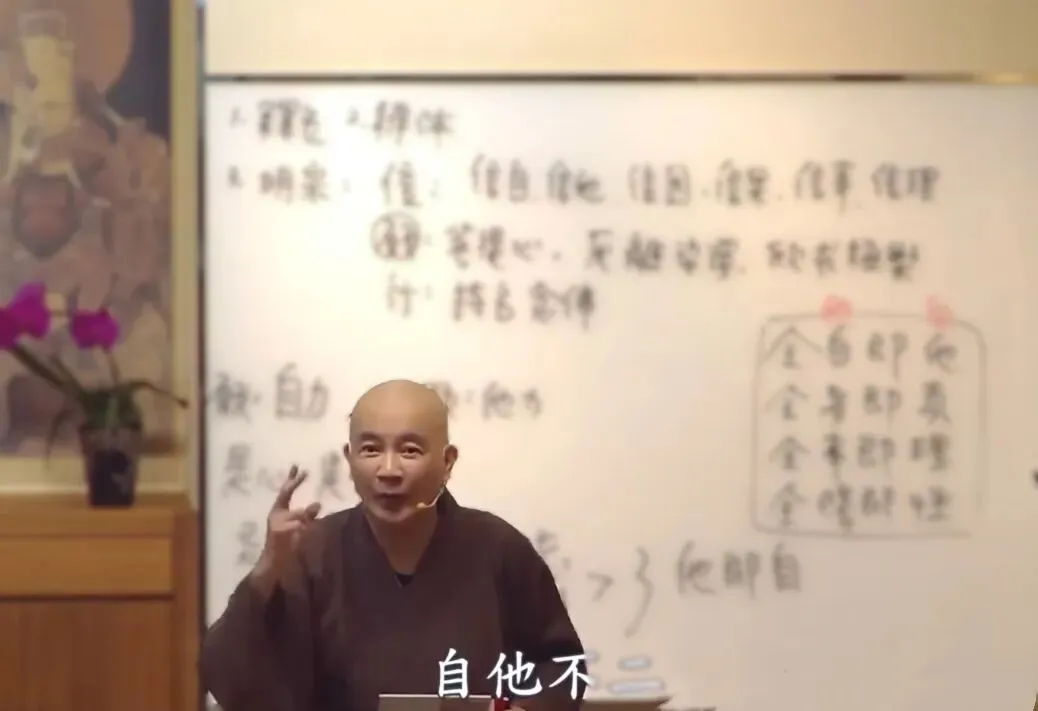 1. 釋名 2. 辨体
3. 明宗: 信: 信自.信他.信因.信果.信事.信理
願: 菩提心. 厌離娑婆. 欣求極樂
行: 持名念佛
全自即他
全妄即真
全事即理
全修即性
自力 他力
是心是
他即自
自他不二